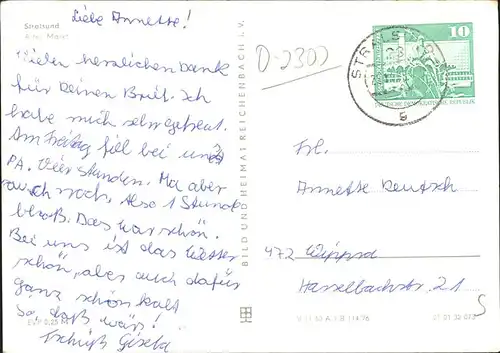 Stralsund
Alter Markt
Liebe Annette!
Vielen herzlichen dank
für Deinen Brief. Ich
habe mich sehr gefreut.
Am Freitag fiel bei uns
PA. Vier Stunden. Ma aber
auch noch. Also 1 Stunde
bloß. Das war schön.
Bei uns ist das Wetter
schön, aber auch dafür
ganz schön kalt
So, daß wärs!
Tschüß Gisela
EVP 0,25 M
BILD UND HEIMAT REICHENBACH I. V.
D-2302
STRALSUND
10
DEUTSCHE DEMOKRATISCHE REPUBLIK
g
Frl.
Annette Deutsch
472 Wippra
Hasselbachstr. 21
V 11 50 A 1 B 114/76
01 21 32 073
S